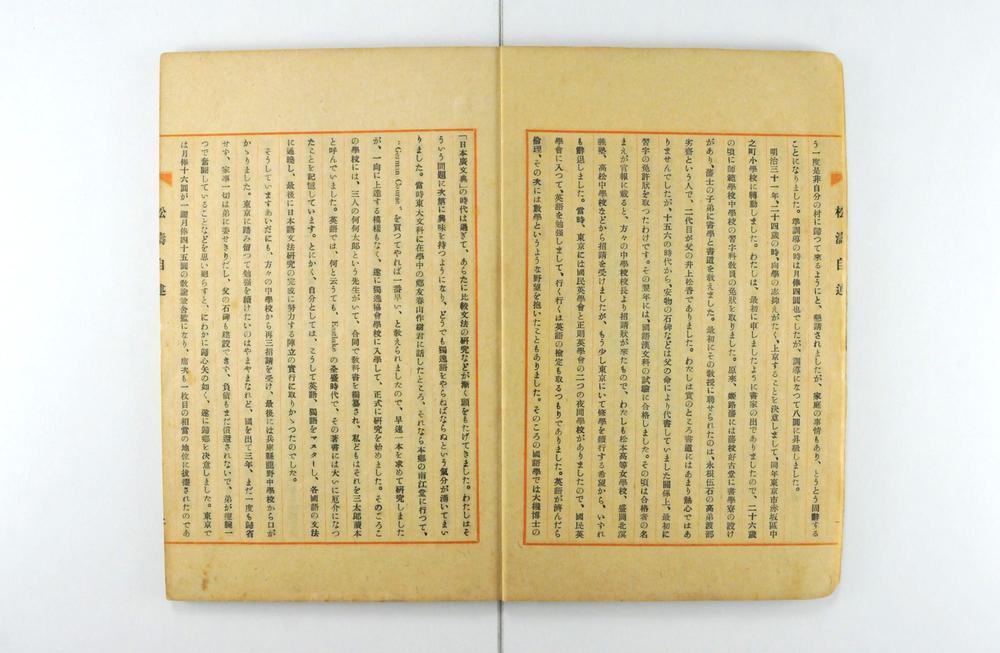 う一度是非自分の村に歸つて來るようにと、懇請されましたが、家庭の事情もあり、とうとう固辭する
ことになりました。準訓導の時は月俸四圓也でしたが、訓導になつて八圓に昇級しました。
明治三十一年、二十四歳の時、向學の志抑えがたく、上京することを決意しまして、同年東京市赤坂區中
之町小學校に轉勤しました。わたしは、最初に申しましたように書家の出でありましたので、二十六歳
の頃に師範學校中學校の習字科敎員の免狀を取りました。原來、姫路藩には藩校好古堂に書學寮の設け
があり、藩士の子弟に書學と書道を敎えました。最初にその敎授に聘せられたのは、永根伍石の高弟渡部
劣齋という人で、二代目が父の井上松香でありました。わたしは實のところ書道にはあまり熱心ではあ
りませんでしたが、十五六の時代から安物の石碑などは父の命により代書していました關係上、最初に
習字の免許狀を取つたわけです。その翌年には、國語漢文科の試驗に合格しました。その頃は合格者の名
まえが官報に載ると、方々の中學校長より招請狀が來たもので、わたしも松本高等女學校、盛岡北溟
義塾、高松中學校などから招請を受けましたが、もう少し東京にいて修學を續行する希望から、いずれ
も辭退しました。當時、東京には國民英學會と正則英學會の二つの夜間學校がありましたので、國民英
學會に入つて、英語を勉強しまして、行く行くは英語の檢定も取るつもりでありました。英語が濟んだら
倫理、その次には數學というような野望を抱いたこともありました。そのころの國語學では大槻博士の
松濤自述
「日本廣文典」の時代は過ぎて、あらたに比較文法の研究などが漸く頭をもたげてきました。わたしはそ
ういう問題に次第に興味を持つようになり、どうでも獨逸語をやらねばならぬという氣分が湧いてまい
りました。當時東大文科に在學中の鄕友春山作樹君に話したところ、それなら本鄕の南江堂に行つて、
“German Course”を買つてやれば一番早い、と敎えられましたので、早速一本を求めて硏究しました
が、一向に上達する模樣もなく、遂に獨逸協會學校に入學して、正式に研究を始めました。そのころこ
の學校には、三人の何何太郎という先生がいて、合同で敎科書を編纂され、私どもはそれを三太郎讀本
と呼んでいました。英語では、何と云うても、Eastlakeの全盛時代で、その著書には大いに厄介になつ
たことを記憶しています。とにかく、自分としては、こうして英語、獨語をマスターし、各國語の文法
に通曉し、最後に日本語文法研究の完成に努力する陣立の實行に取りかゝつたのでした。
そうしていますあいだにも、方々の中學校から再三招請を受け、最後には兵庫縣龍野中學校から口が
かゝりました。東京に踏み留つて勉强を續けたいのはやまやまなれど、國を出て三年、まだ一度も歸省
せず、家事一切は弟に委せきりだし、父の石碑も建設できず、負債もまだ償還されないで、弟が瘦腕一
つで奮鬪していることなどを思い廻らすと、にわかに歸心矢の如く、遂に歸鄕を決意しました。東京で
は月俸十六圓が一躍月俸四十五圓の敎諭兼舍監になり、席次も一枚目の相當の地位に拔擢されたのであ
松濤自述